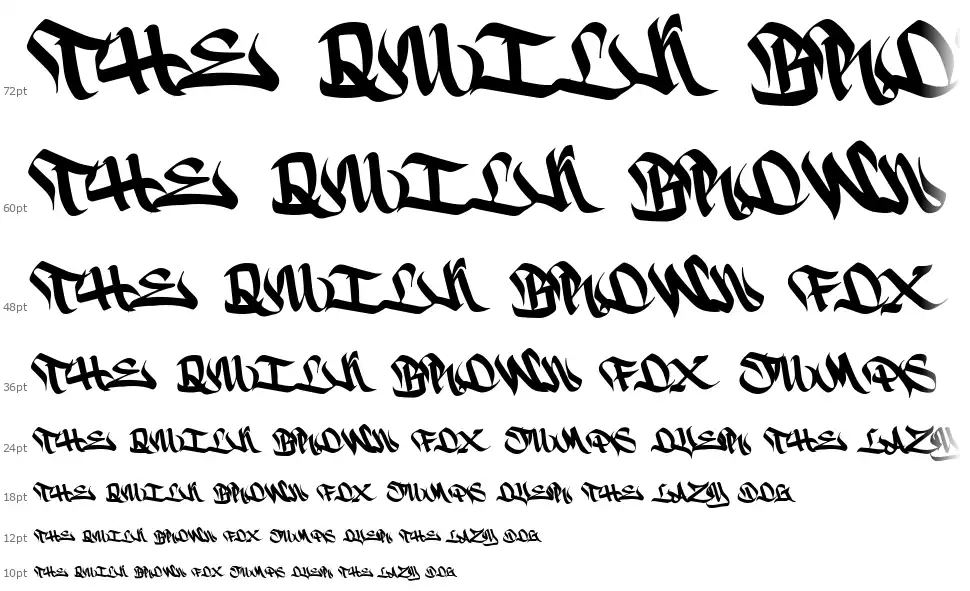 72pt THE QUICK BRO
60pt THE QUICK BROWN
48pt THE QUICK BROWN FOX
36pt THE QUICK BROWN FOX JUMPS
24pt THE QUICK BROWN FOX JUMPS OVER THE LAZY
18pt THE QUICK BROWN FOX JUMPS OVER THE LAZY DOG
12pt THE QUICK BROWN FOX JUMPS OVER THE LAZY DOG
10pt THE QUICK BROWN FOX JUMPS OVER THE LAZY DOG